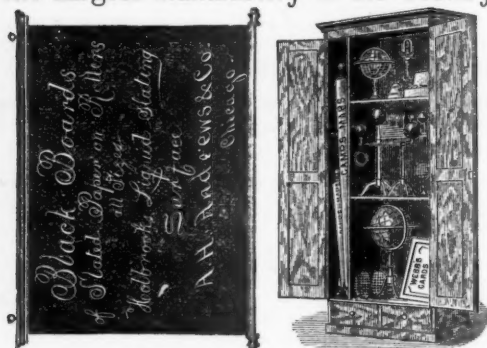 Black Boards
of Slated Paper on Rollers
all Sizes
Holbrook's Liquid Slating
Surface
A.H. Andrews & Co.
Chicago
MAPS
WEBB'S
CARDS